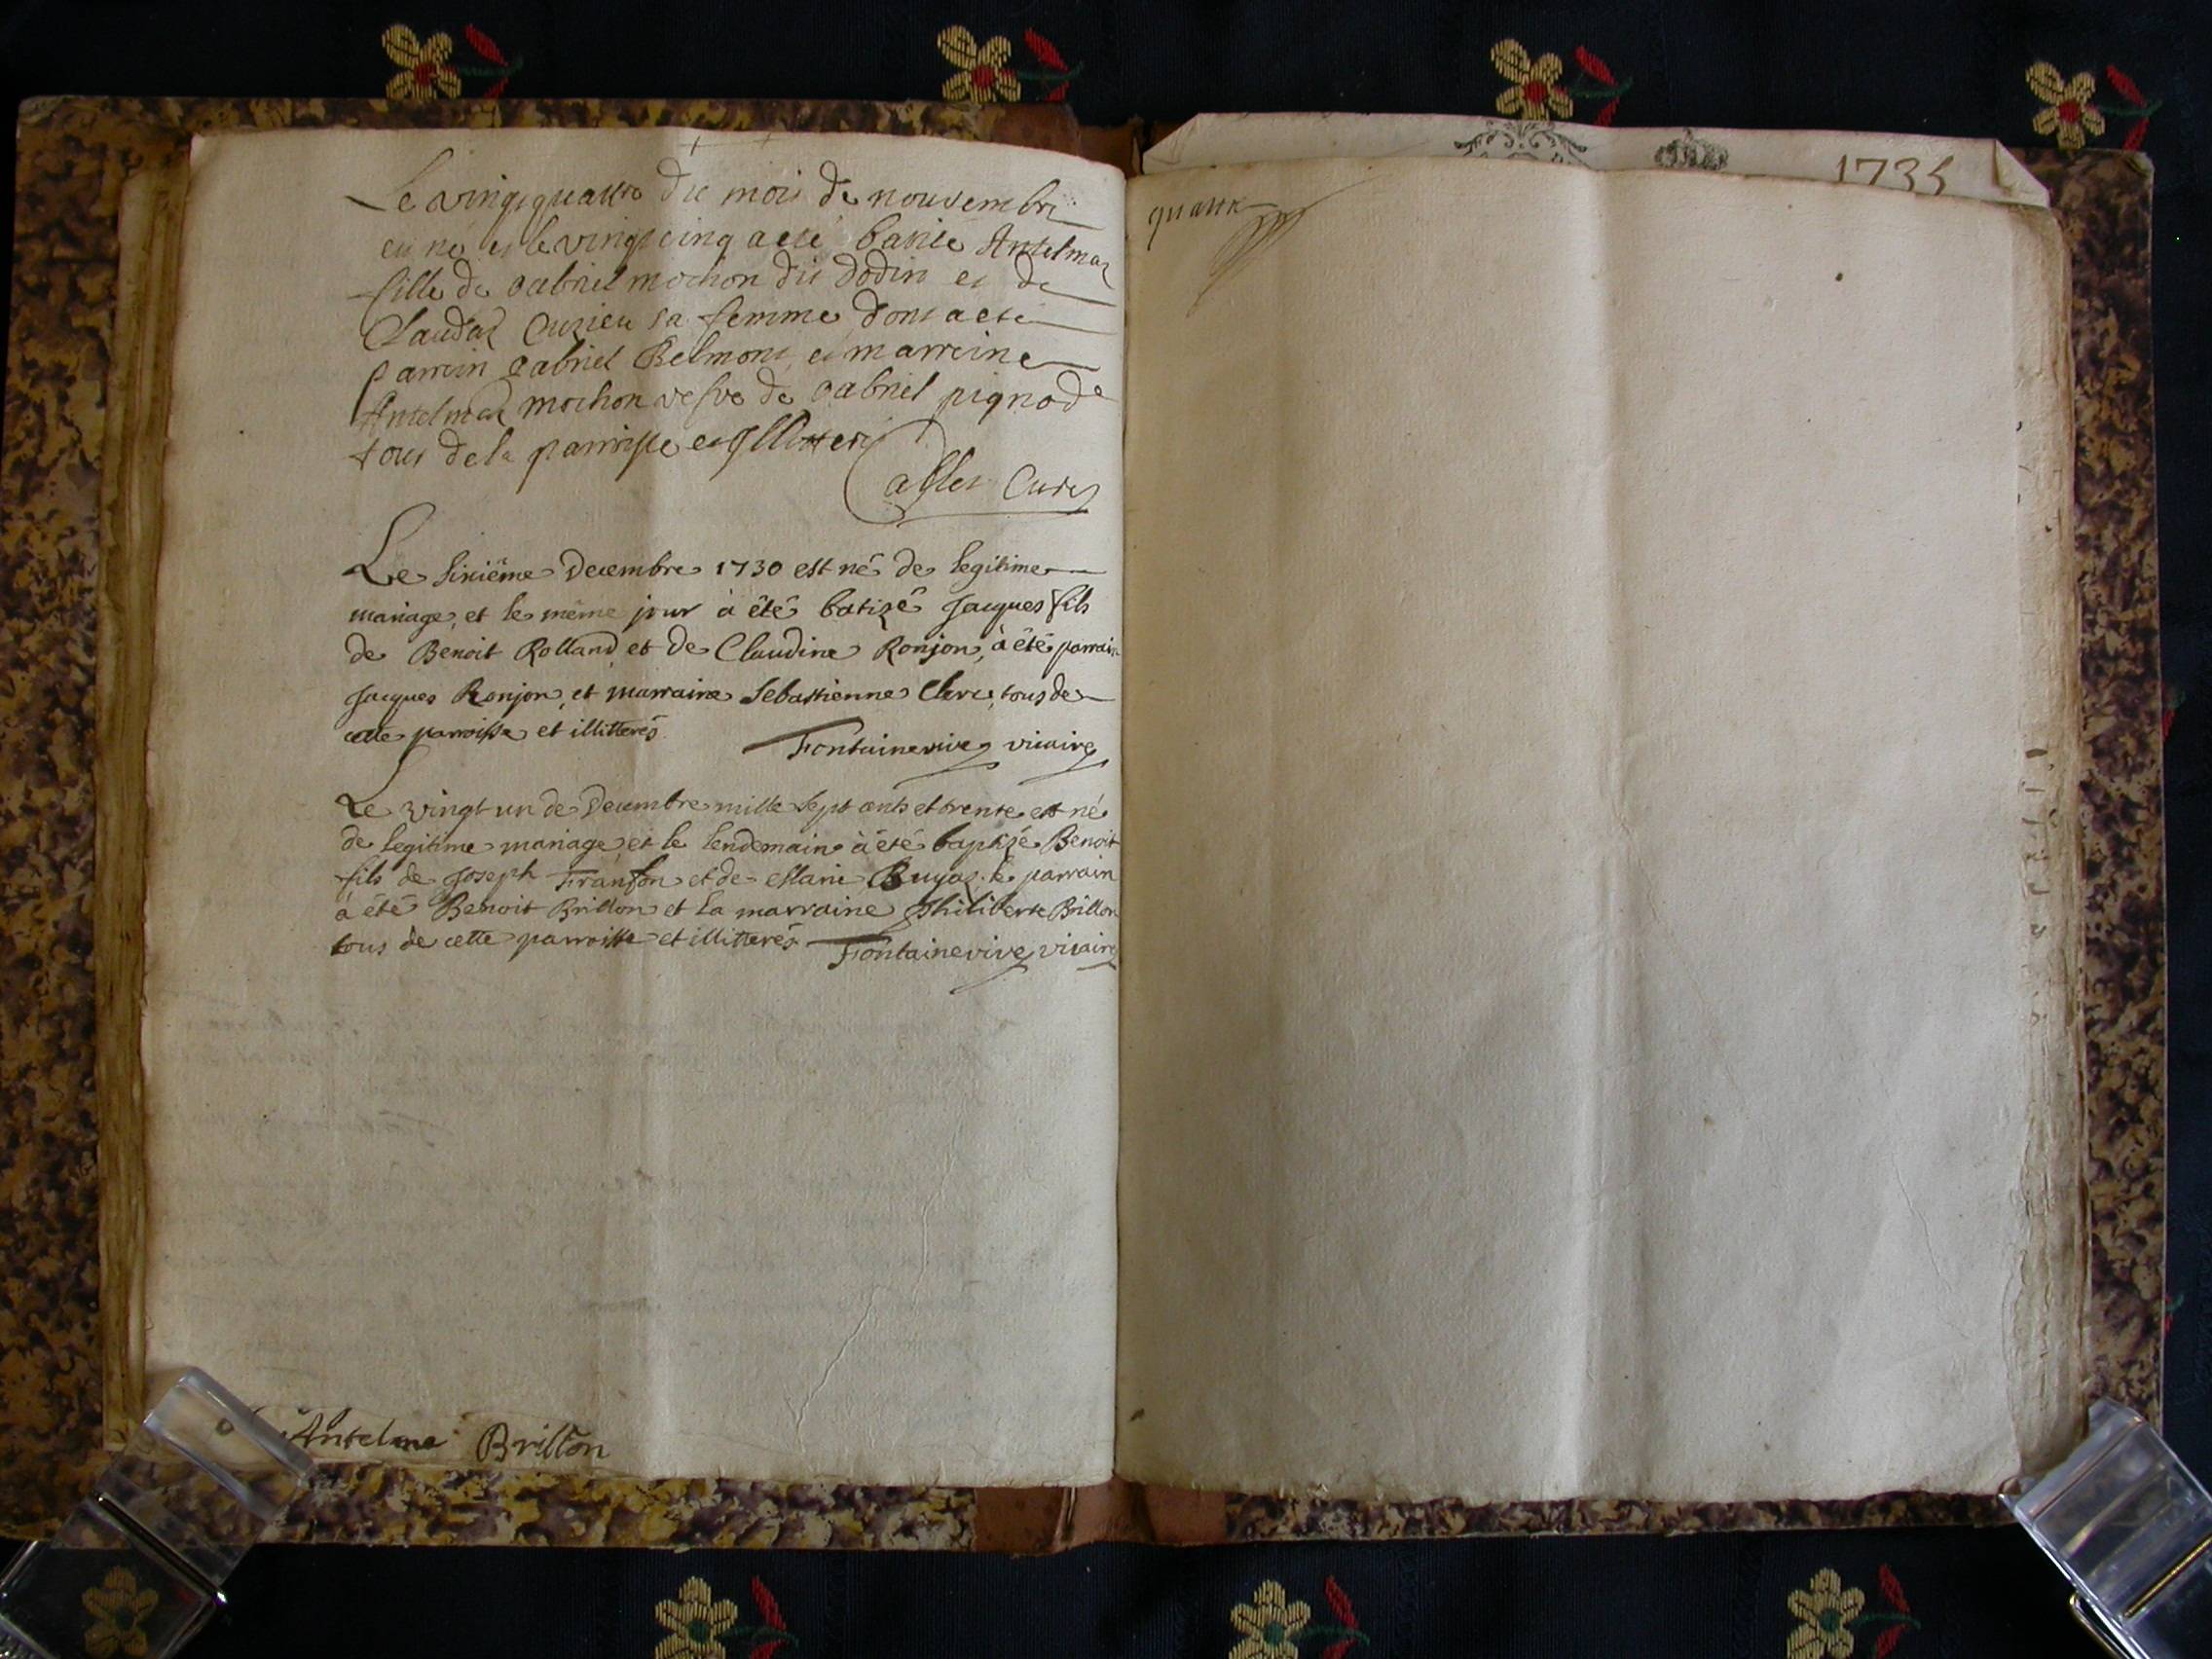 Le vingtquattre du mois de nouvembre
est né et le vingtcinq a eté batisé Antelmaz
fille de gabriel mochon dit dodin et de
Claudaz Curieu sa femme dont a eté
parrin gabriel Belmont et marreine
Antelmaz mochon vefve de gabriel pignod
tous de la parroisse et Illitteré
Curé
Le sixiême Decembre 1730 est né de legitime
mariage, et le même jour à êté batizé Jacques fils
de Benoit Rolland et de Claudine Ronjon, à êté parrain
Jacques Ronjon, et marraine Sebastienne Clerc, tous de
cette parroisse et illitterés
Fontainevive vicaire
Le vingt un de Decembre mille sept cents et trente est né
de legitime mariage et le lendemain à êté baptizé Benoit
fils de Joseph Franson et de Marie Buyaz. le parrain
à êté Benoit Brillon et la marraine Philiberte Brillon
tous de cette parroisse et illitterés
Fontainevive vicaire
Antelme Brillon
quatre
1735